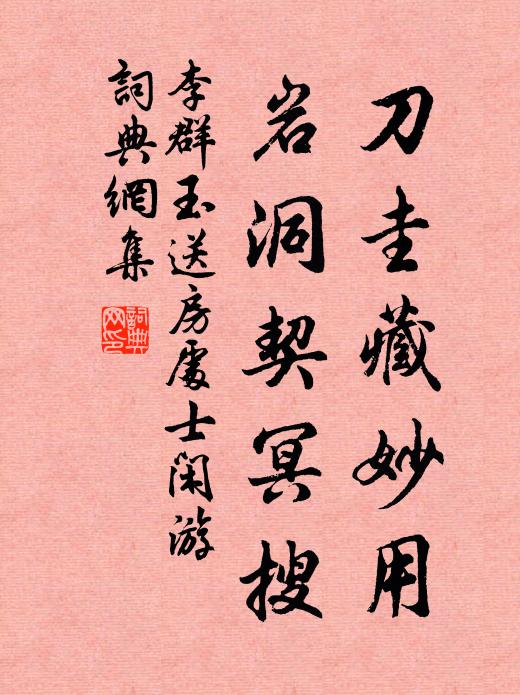 刀圭藏妙用
岩洞契冥搜
李群玉送房處士閑游
詞典網集
詞典網印